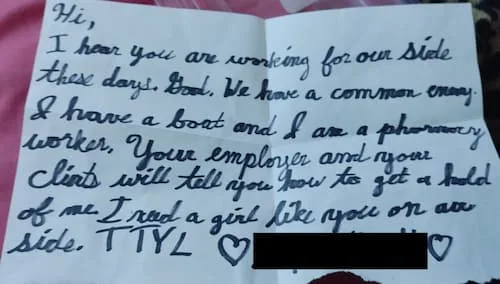 Hi,
I hear you are working for our side
these days. Good. We have a common enemy.
I have a boat and I am a pharmacy
worker. Your employer and your
Clints will tell you how to get a hold
of me. I need a girl like you on our
side. TTYL ♡ ♡